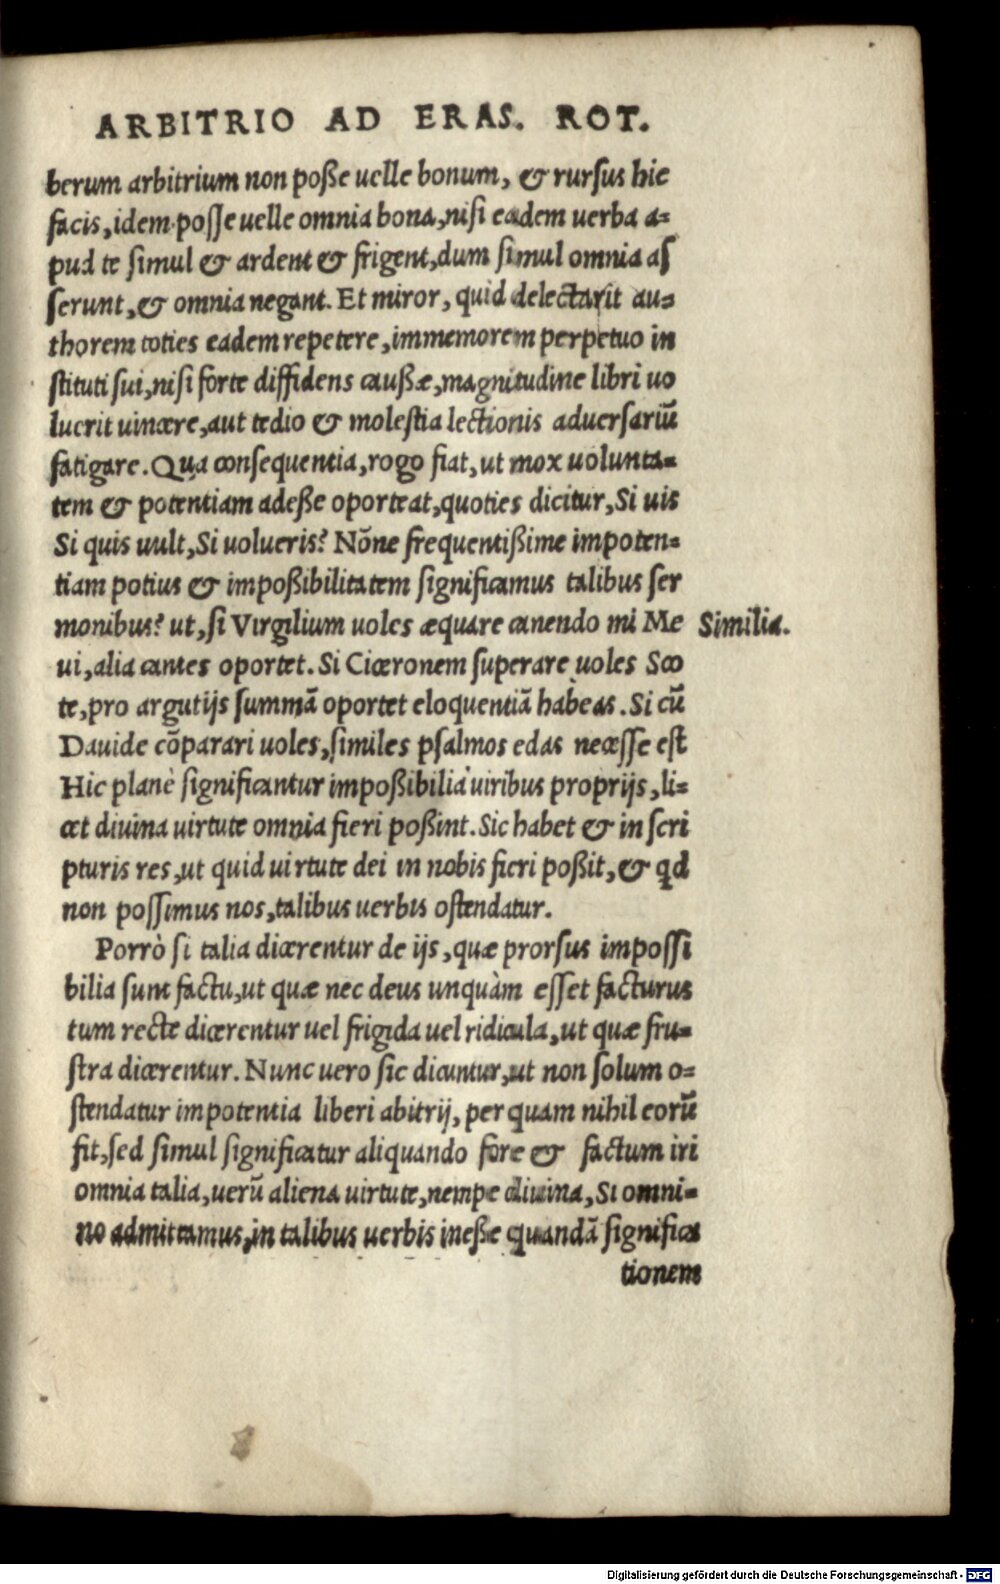 ARBITRIO AD ERAS. ROT.
berum arbitrium non poße uelle bonum, & rursus hic
facis, idem posse uelle omnia bona, nisi eadem uerba a=
pud te simul & ardent & frigent, dum simul omnia as
serunt, & omnia negant. Et miror, quid delectarit au=
thorem toties eadem repetere, immemorem perpetuo in
stituti sui, nisi forte diffidens caußæ, magnitudine libri uo
luerit uincere, aut tedio & molestia lectionis aduersariū
fatigare. Qua consequentia, rogo fiat, ut mox uolunta=
tem & potentiam adeße oporteat, quoties dicitur, Si uis
Si quis uult, Si uolueris? Nōne frequentißime impoten=
tiam potius & impoßibilitatem significamus talibus ser
monibus? ut, si Virgilium uoles æquare canendo mi Me
Similia.
ui, alia cantes oportet. Si Ciceronem superare uoles Sco
te, pro argutijs summā oportet eloquentiā habeas. Si cū
Dauide cōparari uoles, similes psalmos edas necesse est
Hic planè significantur impoßibilia uiribus proprijs, li=
cet diuina uirtute omnia fieri poßint. Sic habet & in scri
pturis res, ut quid uirtute dei in nobis fieri poßit, & qd
non possimus nos, talibus uerbis ostendatur.
Porrò si talia dicerentur de ijs, quæ prorsus impossi
bilia sunt factu, ut quæ nec deus unquàm esset facturus
tum recte dicerentur uel frigida uel ridicula, ut quæ fru=
stra dicerentur. Nunc uero sic dicuntur, ut non solum o=
stendatur impotentia liberi abitrij, per quam nihil eorū
fit, sed simul significatur aliquando fore & factum iri
omnia talia, uerū aliena uirtute, nempe diuina, Si omni=
no admittamus, in talibus uerbis ineße quandā significa
tionem
Digitalisierung gefördert durch die Deutsche Forschungsgemeinschaft - DFG